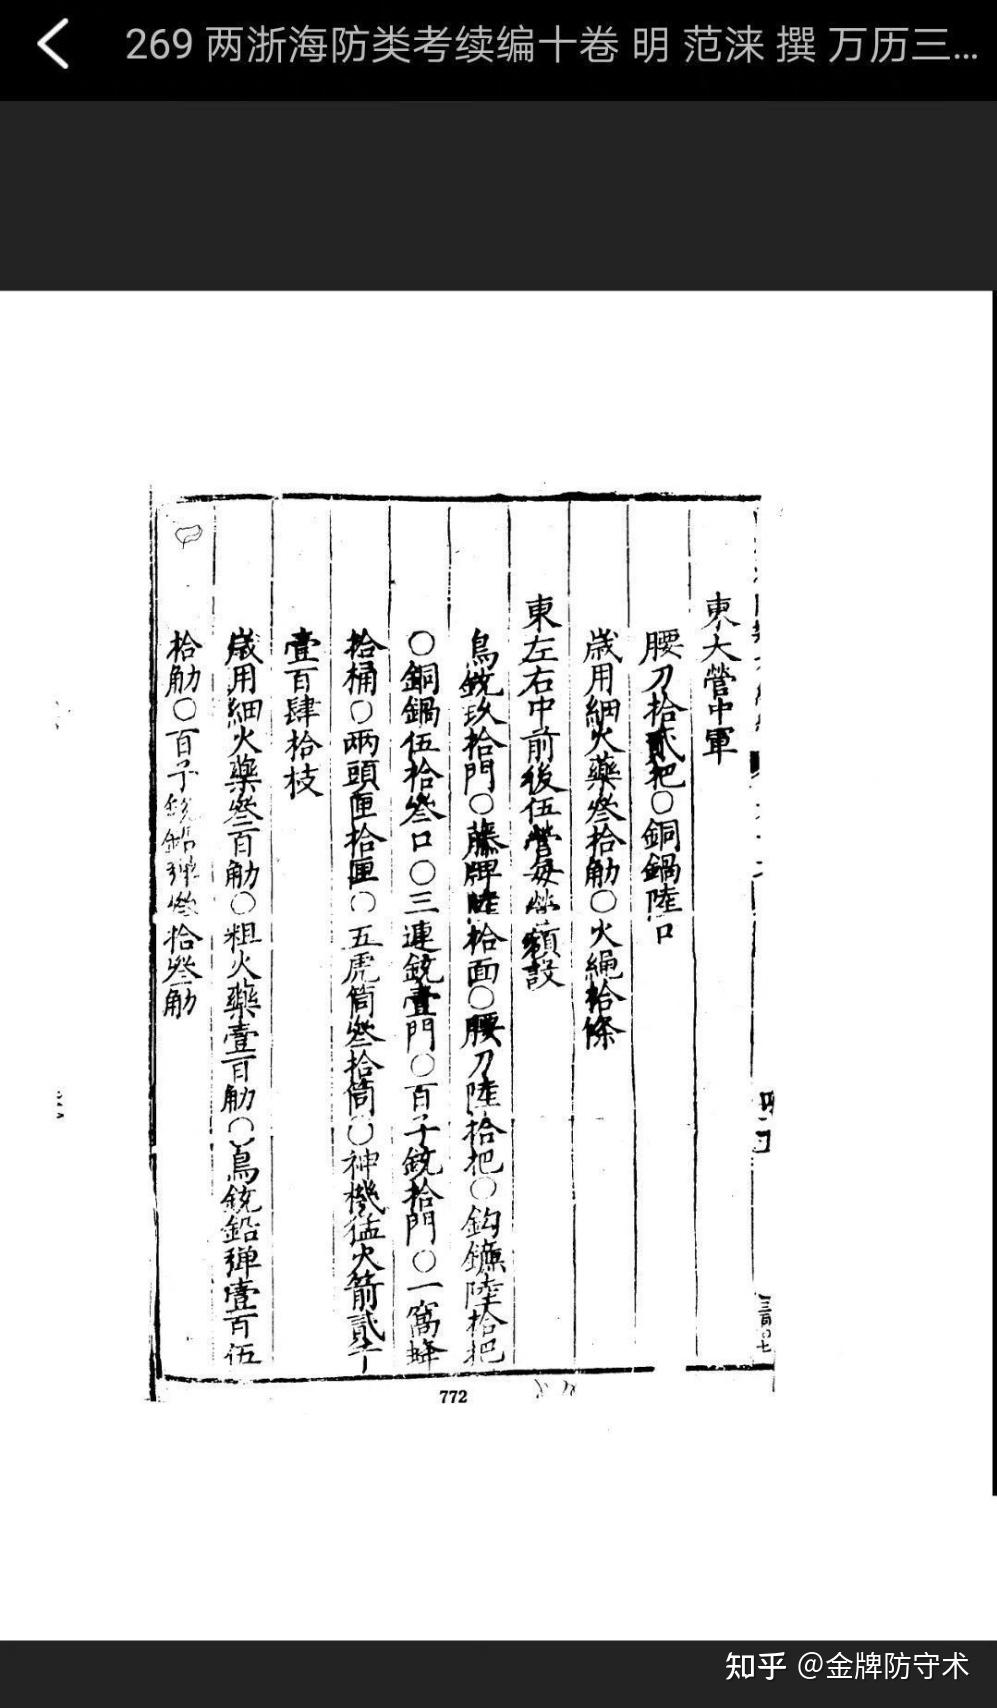 269 两浙海防类考续编十卷 明 范涞 撰 万历三...
東大營中軍
腰刀拾貳把○銅鍋陸口
歲用細火藥叄拾觔○火繩拾條
東左右中前後伍營每營額設
鳥銃玖拾門○藤牌陸拾面○腰刀陸拾把○鈎鐮陸拾把
○銅鍋伍拾叄口○三連銃壹門○百子銃拾門○一窩蜂
拾桶○兩頭匣拾匣○五虎筒叄拾筒○神機猛火箭貳千
壹百肆拾枝
歲用細火藥叄百觔○粗火藥壹百觔○鳥銃鉛彈壹百伍
拾觔○百子銃鉛彈叄拾叄觔
772
知乎 @金牌防守术